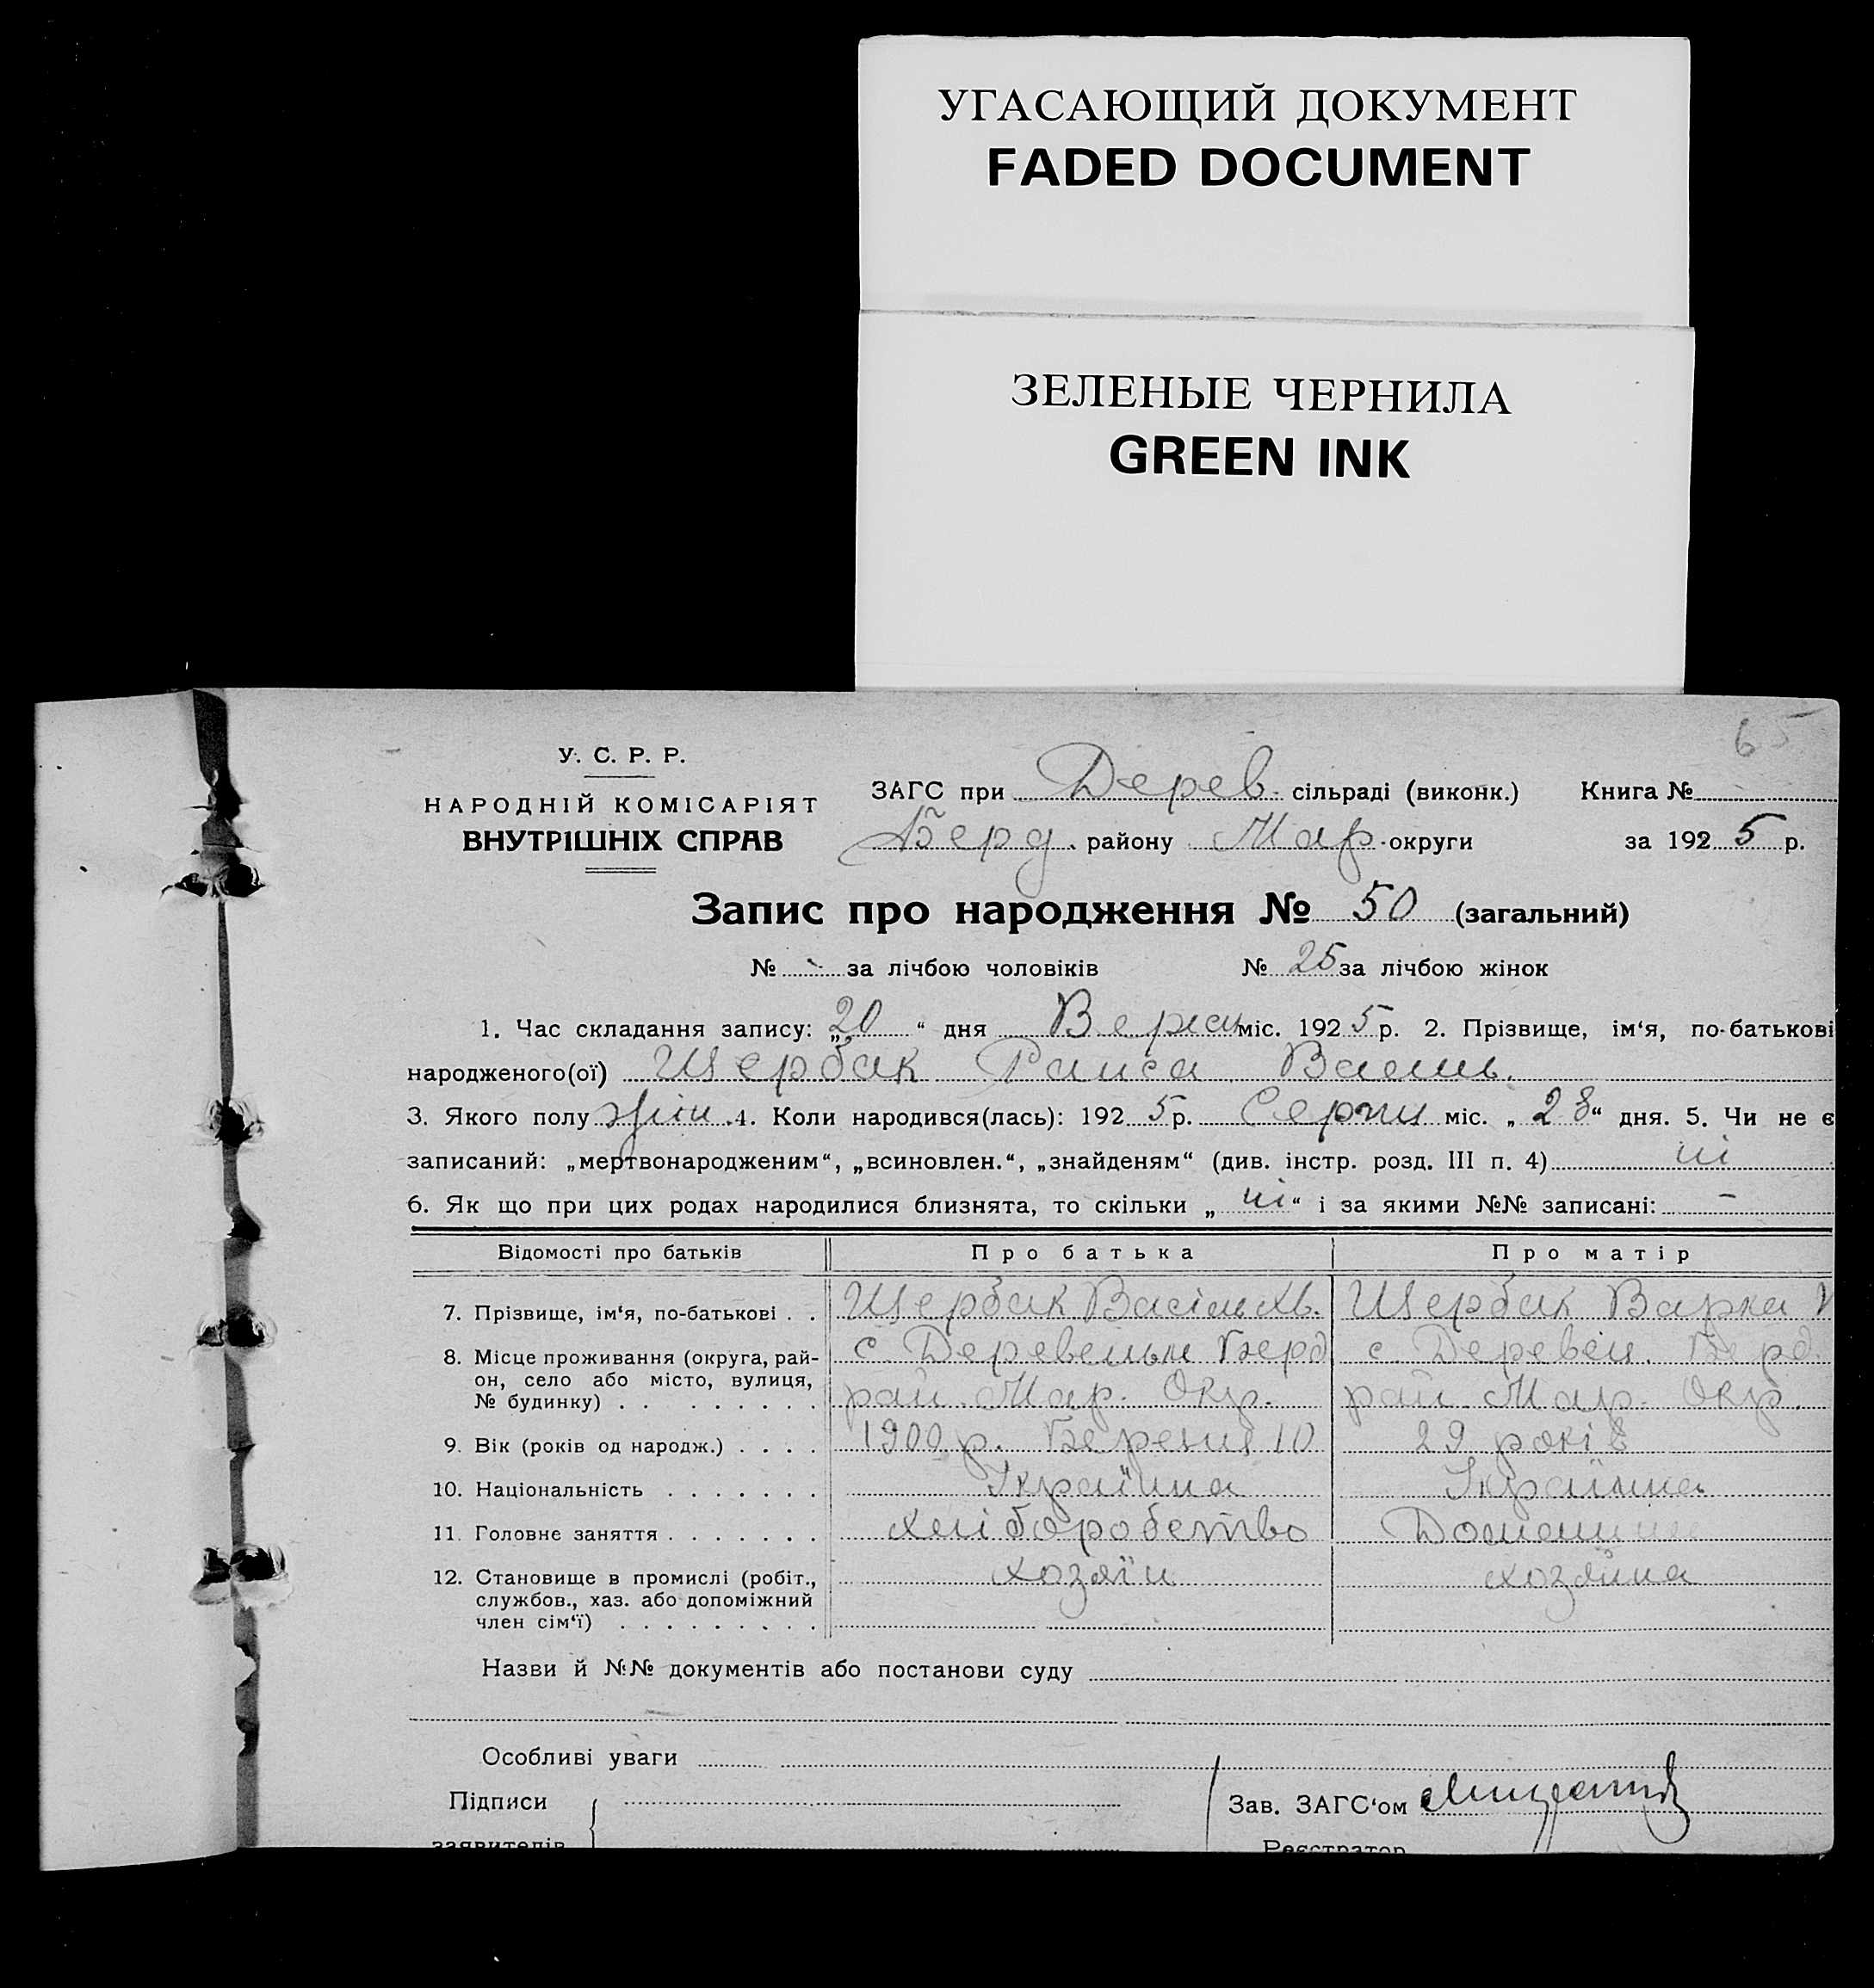 УГАСАЮЩИЙ ДОКУМЕНТ
FADED DOCUMENT
ЗЕЛЕНЫЕ ЧЕРНИЛА
GREEN INK
65
У. С. Р. Р.
НАРОДНІЙ КОМІСАРІЯТ
ВНУТРІШНІХ СПРАВ
ЗАГС при Дерев. сільраді (виконк.) Книга №
Берд. району Мар. округи за 1925 р.
Запис про народження № 50 (загальний)
№ - за лічбою чоловіків № 25 за лічбою жінок
1. Час складання запису: „20“ дняВерес міс. 1925 р. 2. Прізвище, ім‘я, по-батькові
народженого(ої) Щербак Раиса Василь.
3. Якого полу жін. 4. Коли народився(лась): 1925 р. Серпн міс. „28“ дня. 5. Чи не є
записаний: „мертвонародженим“, „всиновлен.“, „знайденям“ (див. інстр. розд. III п. 4) ні
6. Як що при цих родах народилися близнята, то скільки „ні“ і за якими №№ записані: -
Відомості про батьків Про батька Про матір
7. Прізвище, ім‘я, по-батькові . . Щербак Василь Хв. Щербак Варка
8. Місце проживання (округа, рай-
он, село або місто, вулиця,
№ будинку) . . . . . . . .
с. Деревеньки Берд
рай. Мар. Окр.
с. Деревен. Берд.
рай. Мар. Окр.
9. Вік (років од народж.) . . . . 1900 р. Березня 10 29 років
10. Національність . . . . . . . Україина Україинка
11. Головне заняття . . . . . . . хліборобство Домашн
12. Становище в промислі (робіт.,
службов., хаз. або допоміжний
член сім‘ї) . . . . . . . . .
хозяїн
хозяйка
Назви й №№ документів або постанови суду
Особливі уваги
Підписи
заявителів
Зав. ЗАГС‘ом
Реєстратор